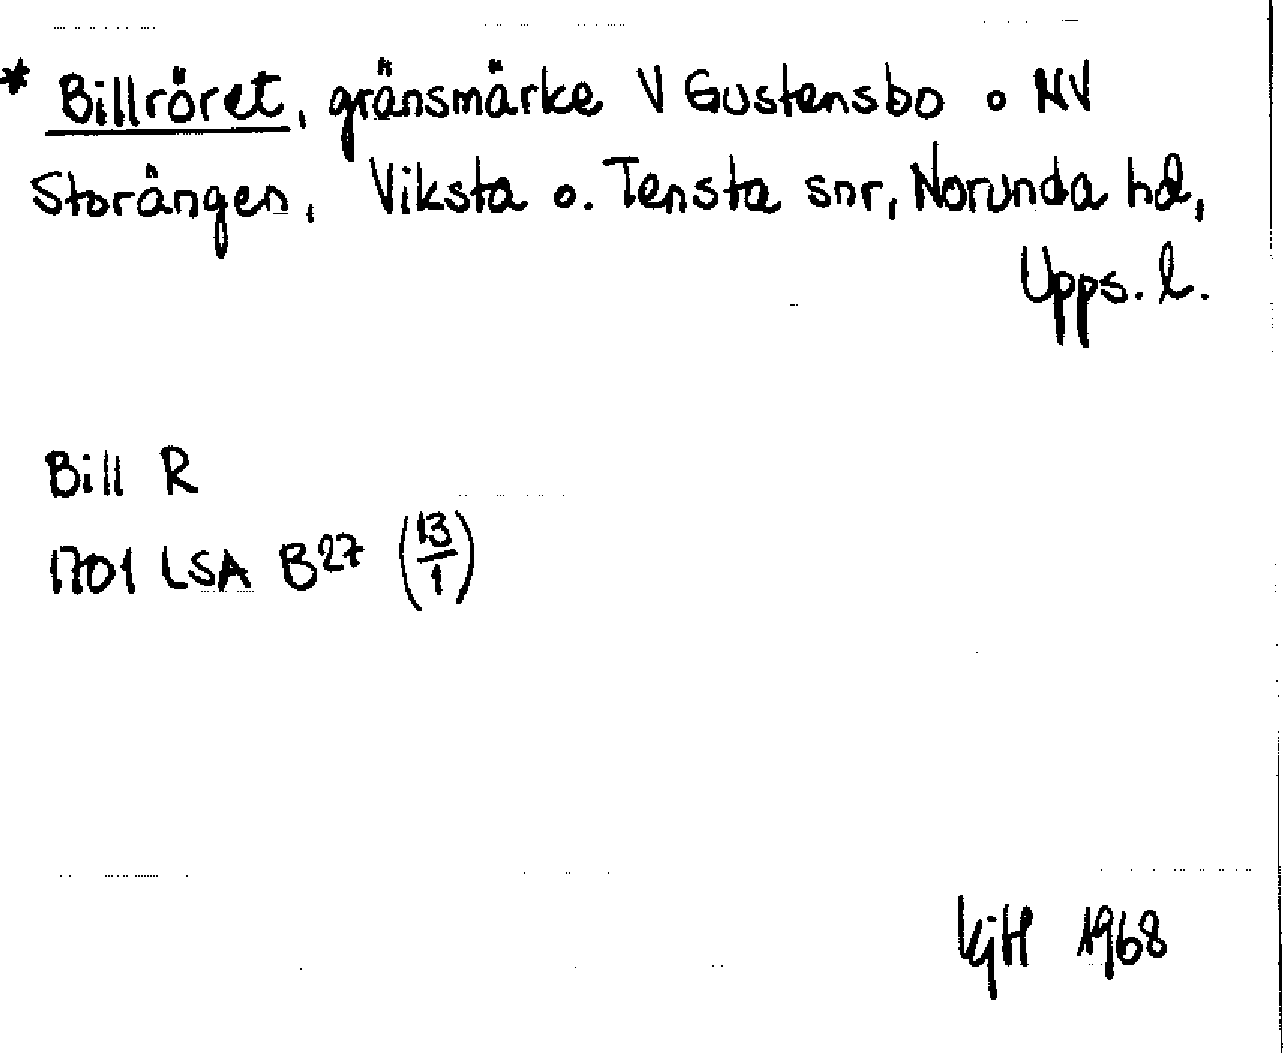 * Billröret, gränsmärke V Gustensbo o NV
Storängen, Viksta o. Tensta snr, Norunda hd,
Upps. l.
Bill R
1701 LSA B27 (13/1)
KjH 1968